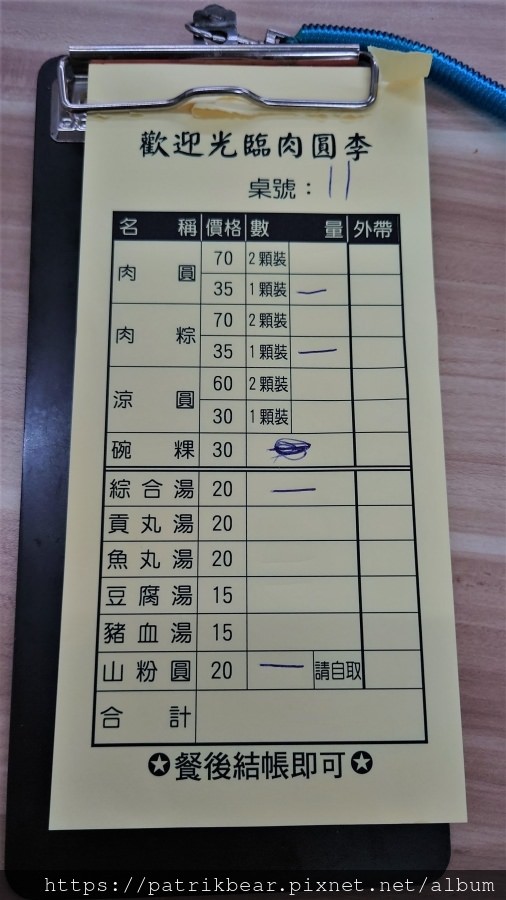 歡迎光臨肉圓李
桌號：11
名稱 價格 數量 外帶
肉圓 70 2顆裝
35 1顆裝 一
肉粽 70 2顆裝
35 1顆裝 一
涼圓 60 2顆裝
30 1顆裝
碗粿 30
綜合湯 20 一
貢丸湯 20
魚丸湯 20
豆腐湯 15
豬血湯 15
山粉圓 20 一 請自取
合計
✪餐後結帳即可✪
https://patrikbear.pixnet.net/album